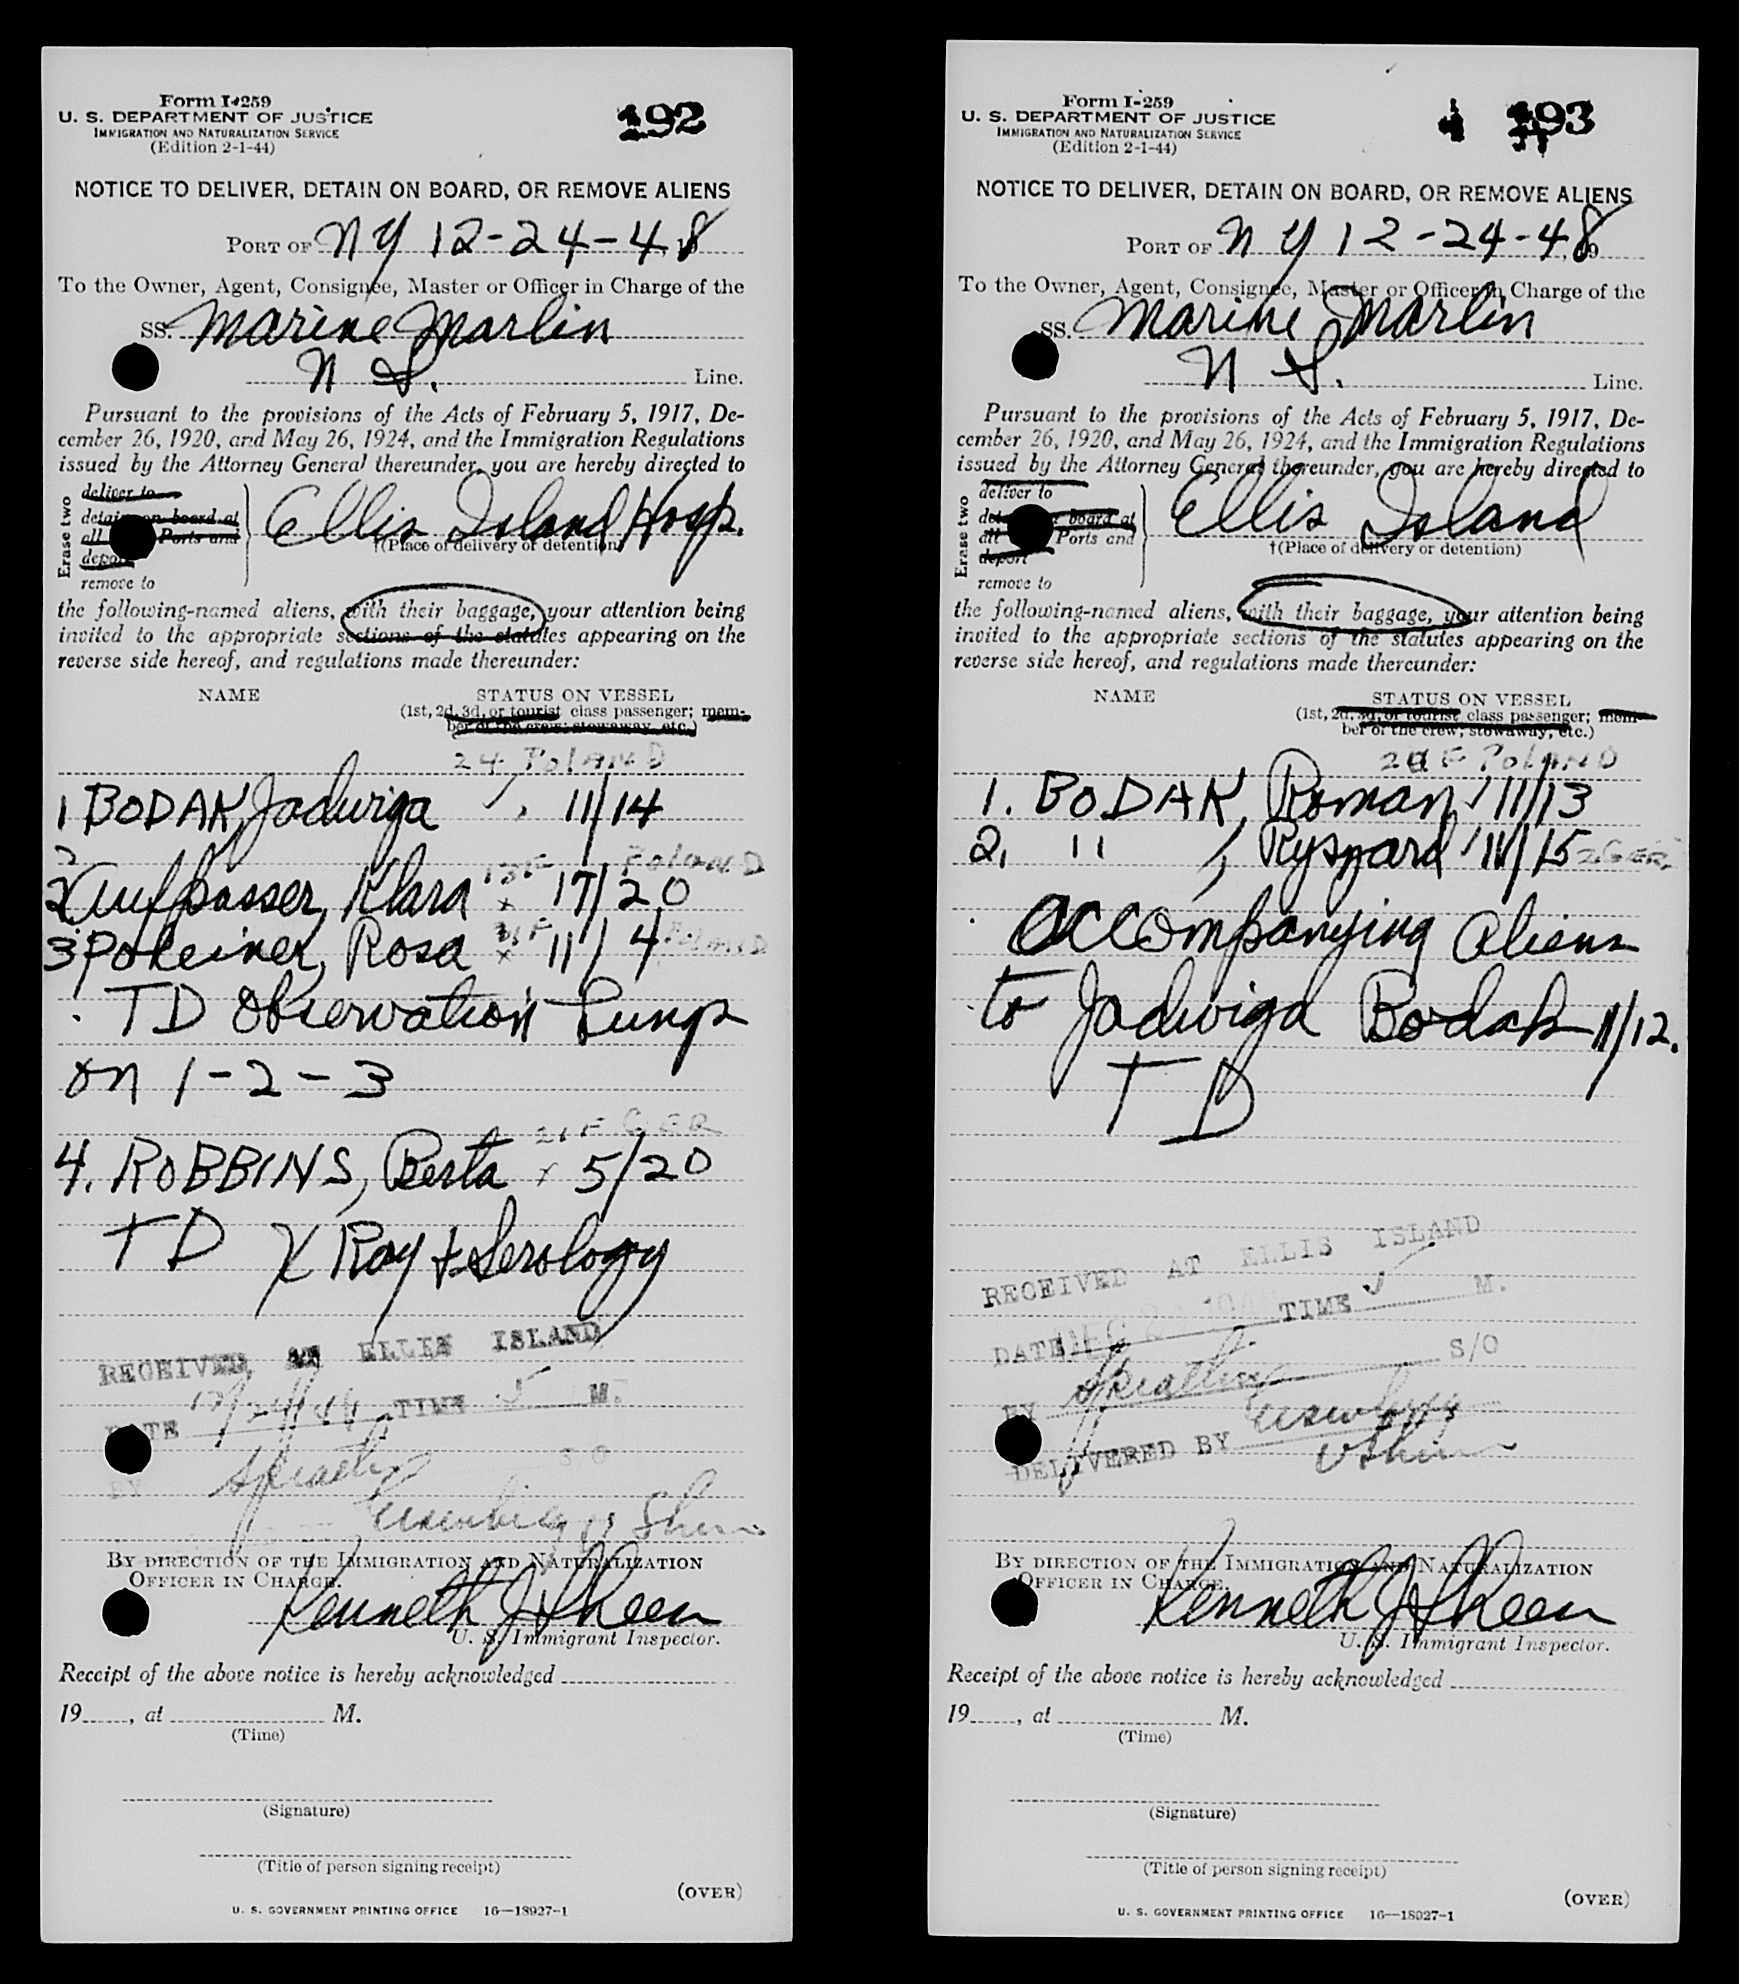 Form I-259
U. S. DEPARTMENT OF JUSTICE
IMMIGRATION AND NATURALIZATION SERVICE
(Edition 2-1-44)
192
NOTICE TO DELIVER, DETAIN ON BOARD, OR REMOVE ALIENS
PORT OF NY 12-24-48
To the Owner, Agent, Consignee, Master or Officer in Charge of the
SS. Marine Marlin
N S. Line.
Pursuant to the provisions of the Acts of February 5, 1917, De-
cember 26, 1920, and May 26, 1924, and the Immigration Regulations
issued by the Attorney General thereunder, you are hereby directed to
Erase two
deliver to
detain on board at
all Ports and
deport
remove to
Ellis Island Hosp.
†(Place of delivery or detention)
the following-named aliens, with their baggage, your attention being
invited to the appropriate sections of the statutes appearing on the
reverse side hereof, and regulations made thereunder:
NAME STATUS ON VESSEL
(1st, 2d, 3d, or tourist class passenger; mem-
ber of the crew; stowaway, etc.)
24 POLAND
1 BODAK, Jadwiga 11/14
13F POLAND
2 Aufpasser, Klara x 17/20
3 Poleiner, Rosa x 11/4 POLAND
TD Observation Lungs
on 1-2-3
21F GER
4. ROBBINS, Berta x 5/20
TD X Ray + Serology
RECEIVED AT ELLIS ISLAND
DATE 12/24/48 TIME M.
BY S/O
BY DIRECTION OF THE IMMIGRATION AND NATURALIZATION
OFFICER IN CHARGE.
Kenneth J Sheen
U. S. Immigrant Inspector.
Receipt of the above notice is hereby acknowledged
19, at M.
(Time)
(Signature)
(Title of person signing receipt)
(OVER)
U. S. GOVERNMENT PRINTING OFFICE 16—18927-1
Form I-259
U. S. DEPARTMENT OF JUSTICE
IMMIGRATION AND NATURALIZATION SERVICE
(Edition 2-1-44)
193
NOTICE TO DELIVER, DETAIN ON BOARD, OR REMOVE ALIENS
PORT OF NY 12-24-48
To the Owner, Agent, Consignee, Master or Officer in Charge of the
SS. Marine Marlin
N S. Line.
Pursuant to the provisions of the Acts of February 5, 1917, De-
cember 26, 1920, and May 26, 1924, and the Immigration Regulations
issued by the Attorney General thereunder, you are hereby directed to
Erase two
deliver to
detain on board at
all Ports and
deport
remove to
Ellis Island
†(Place of delivery or detention)
the following-named aliens, with their baggage, your attention being
invited to the appropriate sections of the statutes appearing on the
reverse side hereof, and regulations made thereunder:
NAME STATUS ON VESSEL
(1st, 2d, 3d, or tourist class passenger; mem-
ber of the crew; stowaway, etc.)
POLAND
1. BODAK, Roman 11/13
2. " , Ryszard 11/15 2 GER
accompanying aliens
to Jadwiga Bodak 11/12.
TD
RECEIVED AT ELLIS ISLAND
DATE TIME M.
BY S/O
DELIVERED BY
BY DIRECTION OF THE IMMIGRATION AND NATURALIZATION
OFFICER IN CHARGE.
Kenneth J Sheen
U. S. Immigrant Inspector.
Receipt of the above notice is hereby acknowledged
19, at M.
(Time)
(Signature)
(Title of person signing receipt)
(OVER)
U. S. GOVERNMENT PRINTING OFFICE 16—18927-1